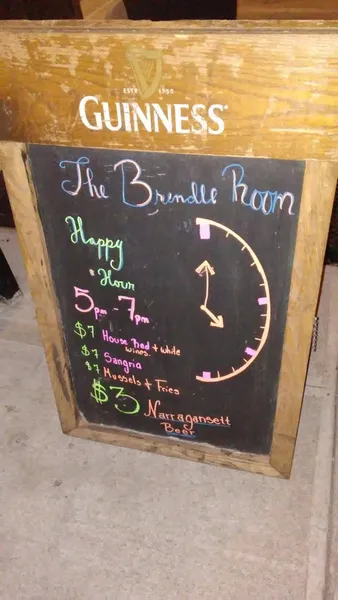 ESTD 1759
GUINNESS
The Brendle Room
Happy
Hour
5pm - 7pm
$7 House Red + white
wines
$7 Sangria
$7 Mussels + Fries
$3 Narragansett
Beer